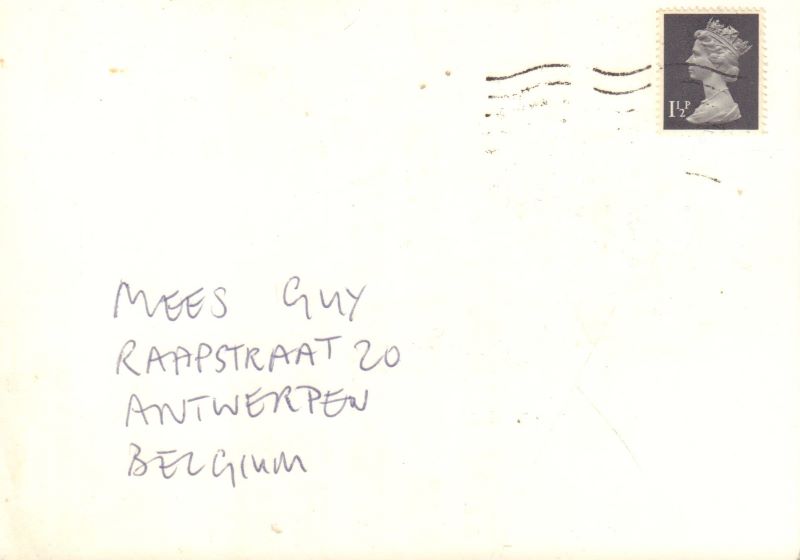 1½P
MEES GUY
RAAPSTRAAT 20
ANTWERPEN
BELGIUM